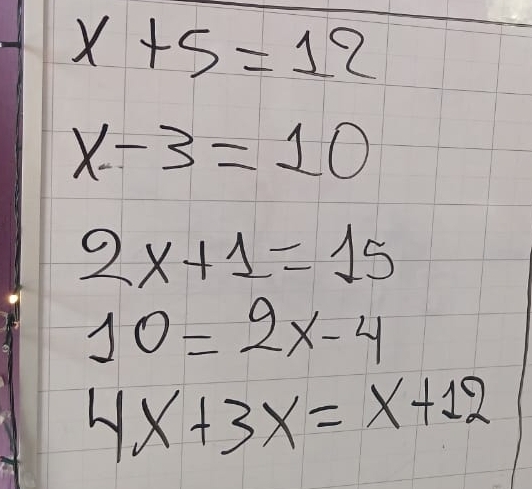 x + 5 = 12
x - 3 = 10
2x + 1 = 15
10 = 2x - 4
4x + 3x = x + 12